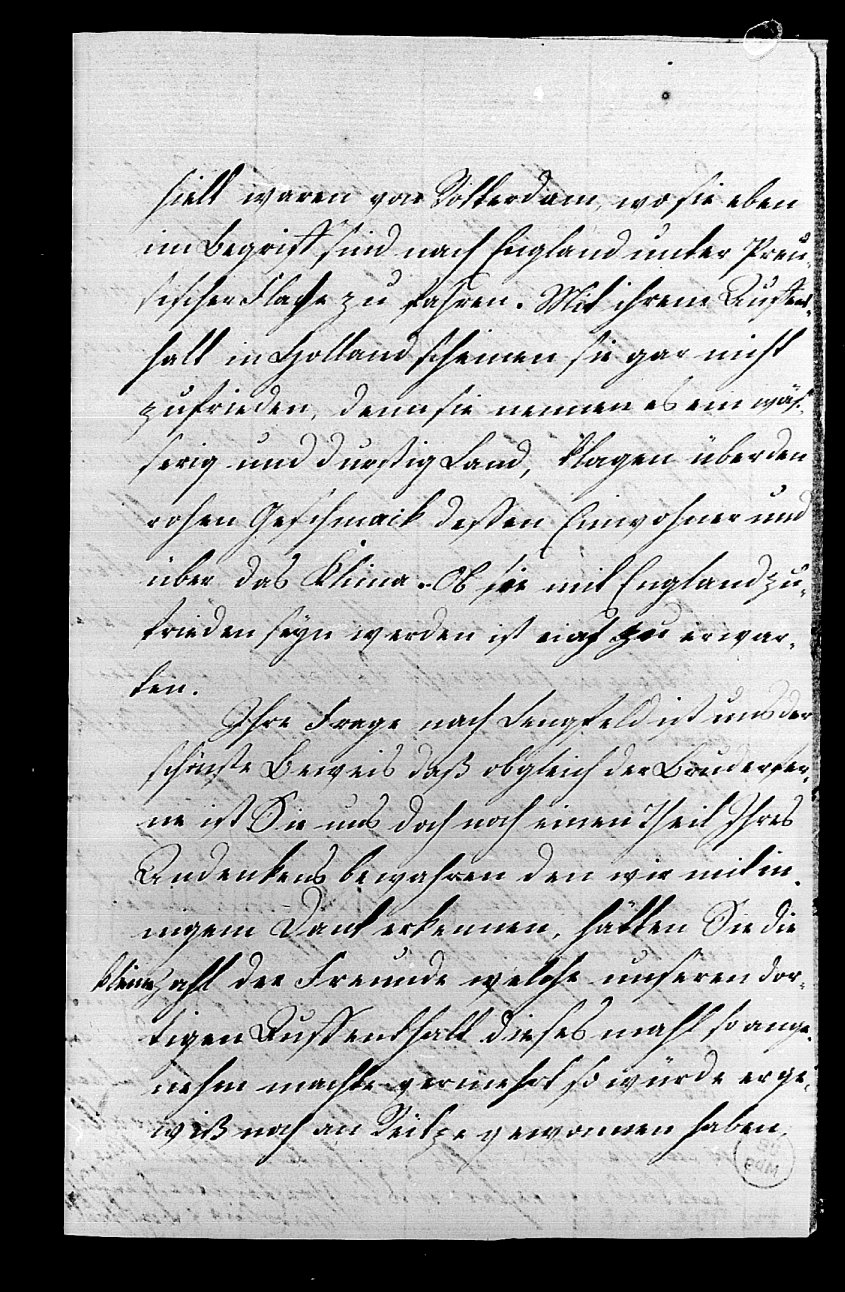 hielt waren von Rotterdam, wo sie eben
im Begriff sind nach England unter Preu-
sischer Flache zu fahren. Mit ihrem Aufent-
halt in Holland scheinen sie gar nicht
zufrieden, denn sie nennen es ein wäs-
serig und durstig Land, klagen über den
rohen Geschmack dessen Einwohner und
über das Klima. Ob sie mit England zu-
frieden seyn werden ist auch zu erwar-
ten.
Ihre Frage nach Lengfeld ist uns der
schönste Beweis daß obgleich der Bruder fer-
ne ist Sie uns doch noch einen Theil Ihres
Andenkens bewahren den wir mit in-
nigem Dank erkennen, hätten Sie die
kleine Zahl der Freunde welche unseren dor-
tigen Auffenthalt dieses mahl so ange-
nehm machte vermehrt so würde er ge-
wiß noch an Reitze gewonnen haben,